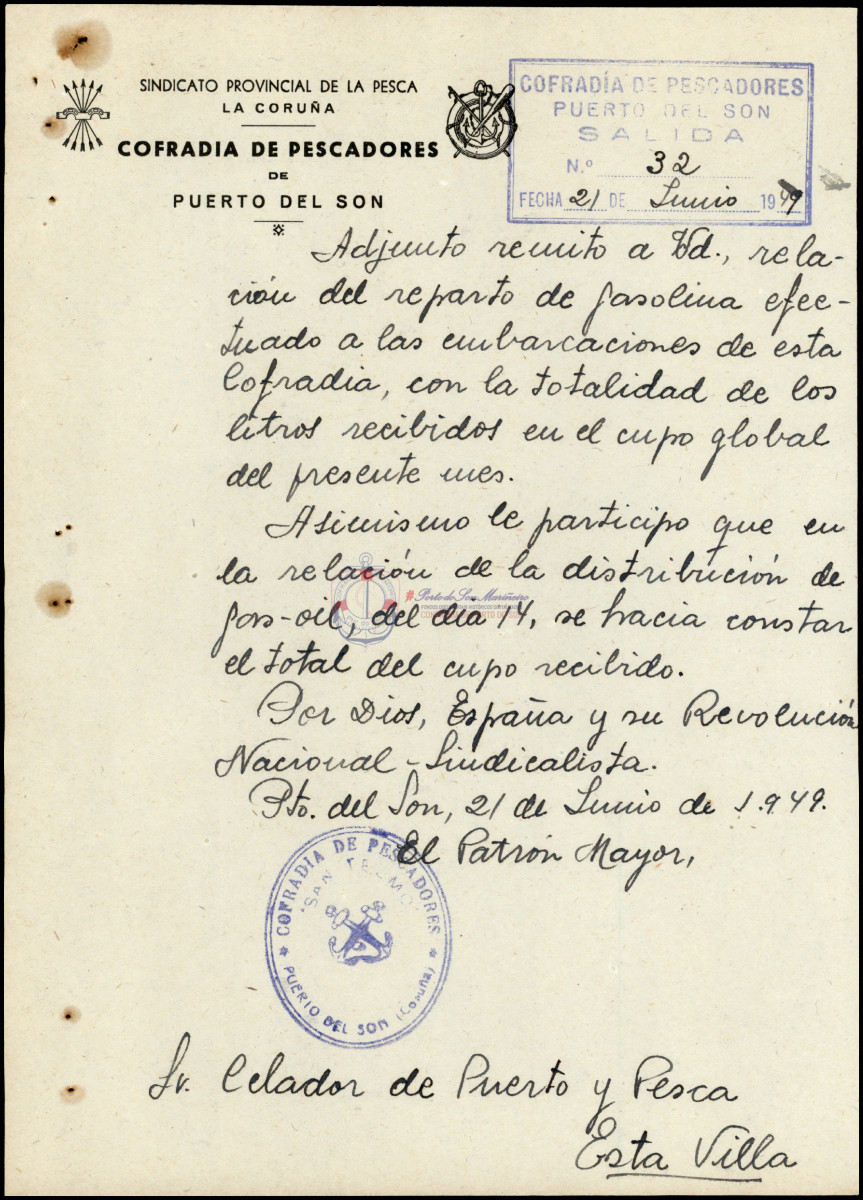 SINDICATO PROVINCIAL DE LA PESCA
LA CORUÑA
COFRADIA DE PESCADORES
DE
PUERTO DEL SON
COFRADÍA DE PESCADORES
PUERTO DEL SON
SALIDA
N.º 32
FECHA 21 DE Junio 1949
Adjunto remito a Vd., rela-
ción del reparto de gasolina efec-
tuado a las embarcaciones de esta
Cofradia, con la totalidad de los
litros recibidos en el cupo global
del presente mes.
Asimismo le participo que en
la relación de la distribución de
gas-oil, del día 14, se hacia constar
el total del cupo recibido.
Por Dios, España y su Revolución
Nacional-Sindicalista.
Pto. del Son, 21 de Junio de 1.949.
El Patrón Mayor,
COFRADIA DE PESCADORES
"SAN TELMO"
PUERTO DEL SON (Coruña)
Sr. Celador de Puerto y Pesca
Esta Villa
#Porto do Son Mariñeiro